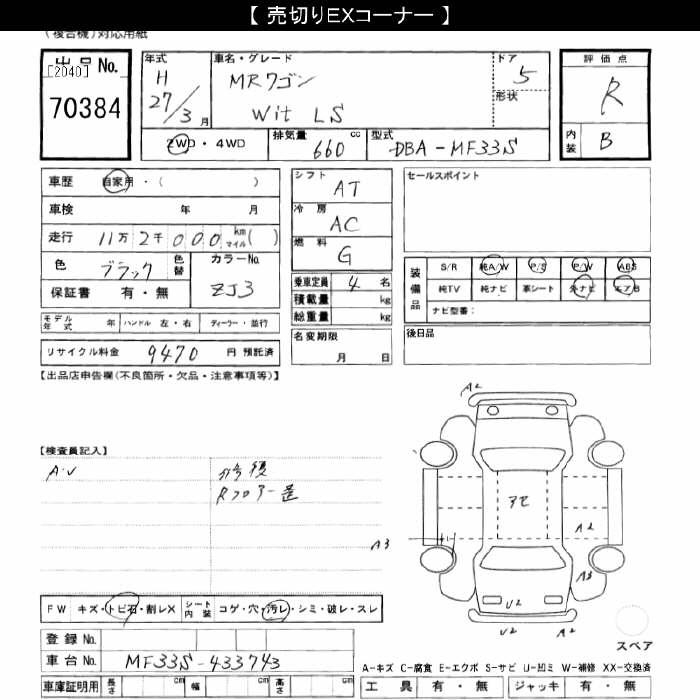 【 売切りEXコーナー 】
(複合機)対応用紙
出品No.
[2040]
70384
年式
H
27/3 月
車名・グレード
MRワゴン
Wit LS
ドア
5
形状
評価点
R
内装
B
2WD・4WD
排気量 660 cc
型式 DBA-MF33S
車歴 自家用・( )
車検 年 月
走行 11万2千000 km マイル( )
色 ブラック 色替
カラーNo. ZJ3
保証書 有・無
モデル年式 年 ハンドル 左・右 ディーラー・並行
リサイクル料金 9470 円 預託済
シフト AT
冷房 AC
燃料 G
乗車定員 4 名
積載量 kg
総重量 kg
名変期限
月 日
セールスポイント
装備品
S/R 純A/W P/S P/W ABS
純TV 純ナビ 革シート 外ナビ エアB
ナビ型番:
後日品
【出品店申告欄(不良箇所・欠品・注意事項等)】
【検査員記入】
A・U
R フロアー歪
A2
アセ
A2
A3
A3
U2
U2
A2
FW キズ・トビ石・割レX シート内装 コゲ・穴・汚レ・シミ・破レ・スレ
登録No.
車台No. MF33S-433743
車庫証明用 長さ cm 幅 cm 高さ cm
スペア
A-キズ C-腐食 E-エクボ S-サビ U-凹ミ W-補修 XX-交換済
工具 有・無 ジャッキ 有・無